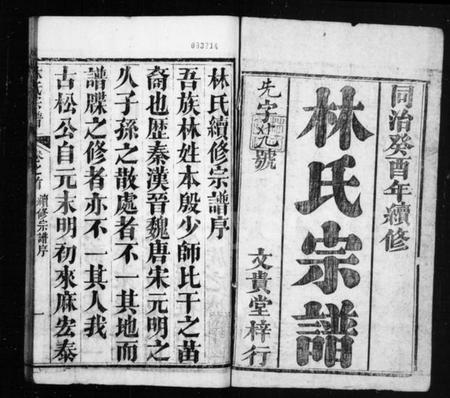 同治癸酉年續修
林氏宗譜
先字 號
文貴堂梓行
003214
林氏續修宗譜序
吾族林姓本殷少師比干之苗
裔也歷秦漢晉魏唐宋元明之
久子孫之散處者不一其地而
譜牒之修者亦不一其人我
古松公自元末明初來麻宏泰
林氏宗譜 卷之首 續修宗譜序 一